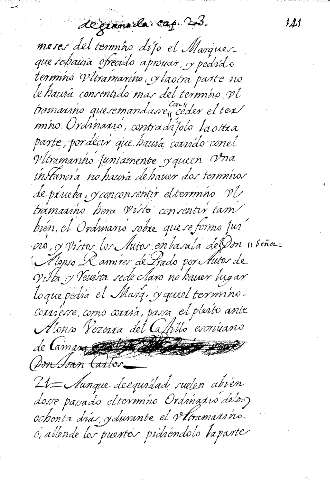 de granada. cap. 23. 141
meses del termino dijo el Marques
que se havia ofrecido a provar, y pedido
termino Vltramarino, y la otra parte no
le havia consentido mas del termino Vl
tramarino que se mandasse conceder el ter
mino Ordinario, contradijolo la otra
parte, por decir que havia corrido con el
Vltramarino juntamente y que en vna
instancia no havia de haver dos terminos
de prueba, y con consentir el termino Vl
tramarino hera visto consentir tam
bien, el Ordinario sobre que se formo jui
cio, y Vistos los Autos en la sala de Don
Alonso Ramires de Prado por Autos de
Vista, y Revista se declaro no haver lugar
lo que pedia el Marq. y que el termino
corriesse, como corria, passa el pleito ante
Alonso Vezerra del Castillo escrivano
de Camara
Don Juan Carlos
24 = Aunque de equidad suelen avien
dose passado el termino Ordinario de los
ochenta dias, y durante el Vltramarino
o, allende los puertos pidiendolo la parte